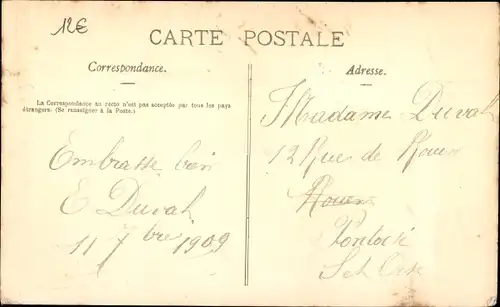 12€
CARTE POSTALE
Correspondance.
La Correspondance au recto n'est pas acceptée par tous les pays
étrangers. (Se renseigner à la Poste.)
Embrasse bien
E Duval
11 7bre 1909
Adresse.
Madame Duval
12 Rue de Rouen
Rouen
Pontoise
S et Oise